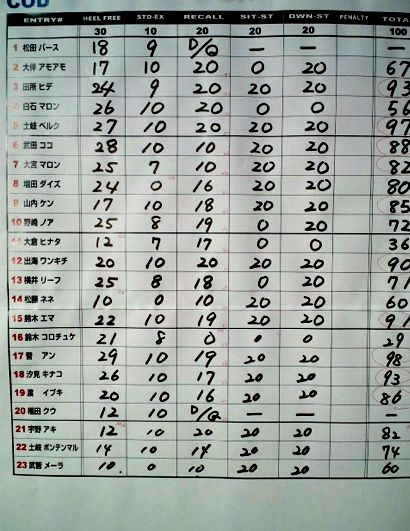 CUD
ENTRY# HEEL FREE STD-EX RECALL SIT-ST DWN-ST PENALTY TOTA
30 10 20 20 20 100
1 松田 バース 18 9 D/Q — —
2 大伴 アモアモ 17 10 20 0 20 67
3 田所 ヒデ 24 9 20 20 20 93
4 白石 マロン 26 10 20 0 0 56
5 土岐 ベルク 27 10 20 20 20 97
6 武田 ココ 28 10 10 20 20 88
7 大宮 マロン 25 7 10 20 20 82
8 増田 ダイズ 24 0 16 20 20 80
9 山内 ケン 17 10 18 20 20 85
10 野崎 ノア 25 8 19 0 20 72
11 大倉 ヒナタ 12 7 17 0 0 36
12 出海 ワンキチ 20 10 20 20 20 90
13 横井 リーフ 25 8 18 0 20 71
14 松藤 ネネ 10 0 10 20 20 60
15 鈴木 エマ 22 10 19 20 20 91
16 鈴木 コロチュケ 21 8 0 0 0 29
17 菅 アン 29 10 19 20 20 98
18 汐見 キナコ 26 10 17 20 20 93
19 渡 イブキ 20 10 16 20 20 86
20 福田 クウ 12 10 D/Q — — —
21 宇野 アキ 12 10 20 20 20 82
22 土岐 ポンテンマル 14 10 14 20 20 74
23 武智 メーラ 10 0 10 20 20 60